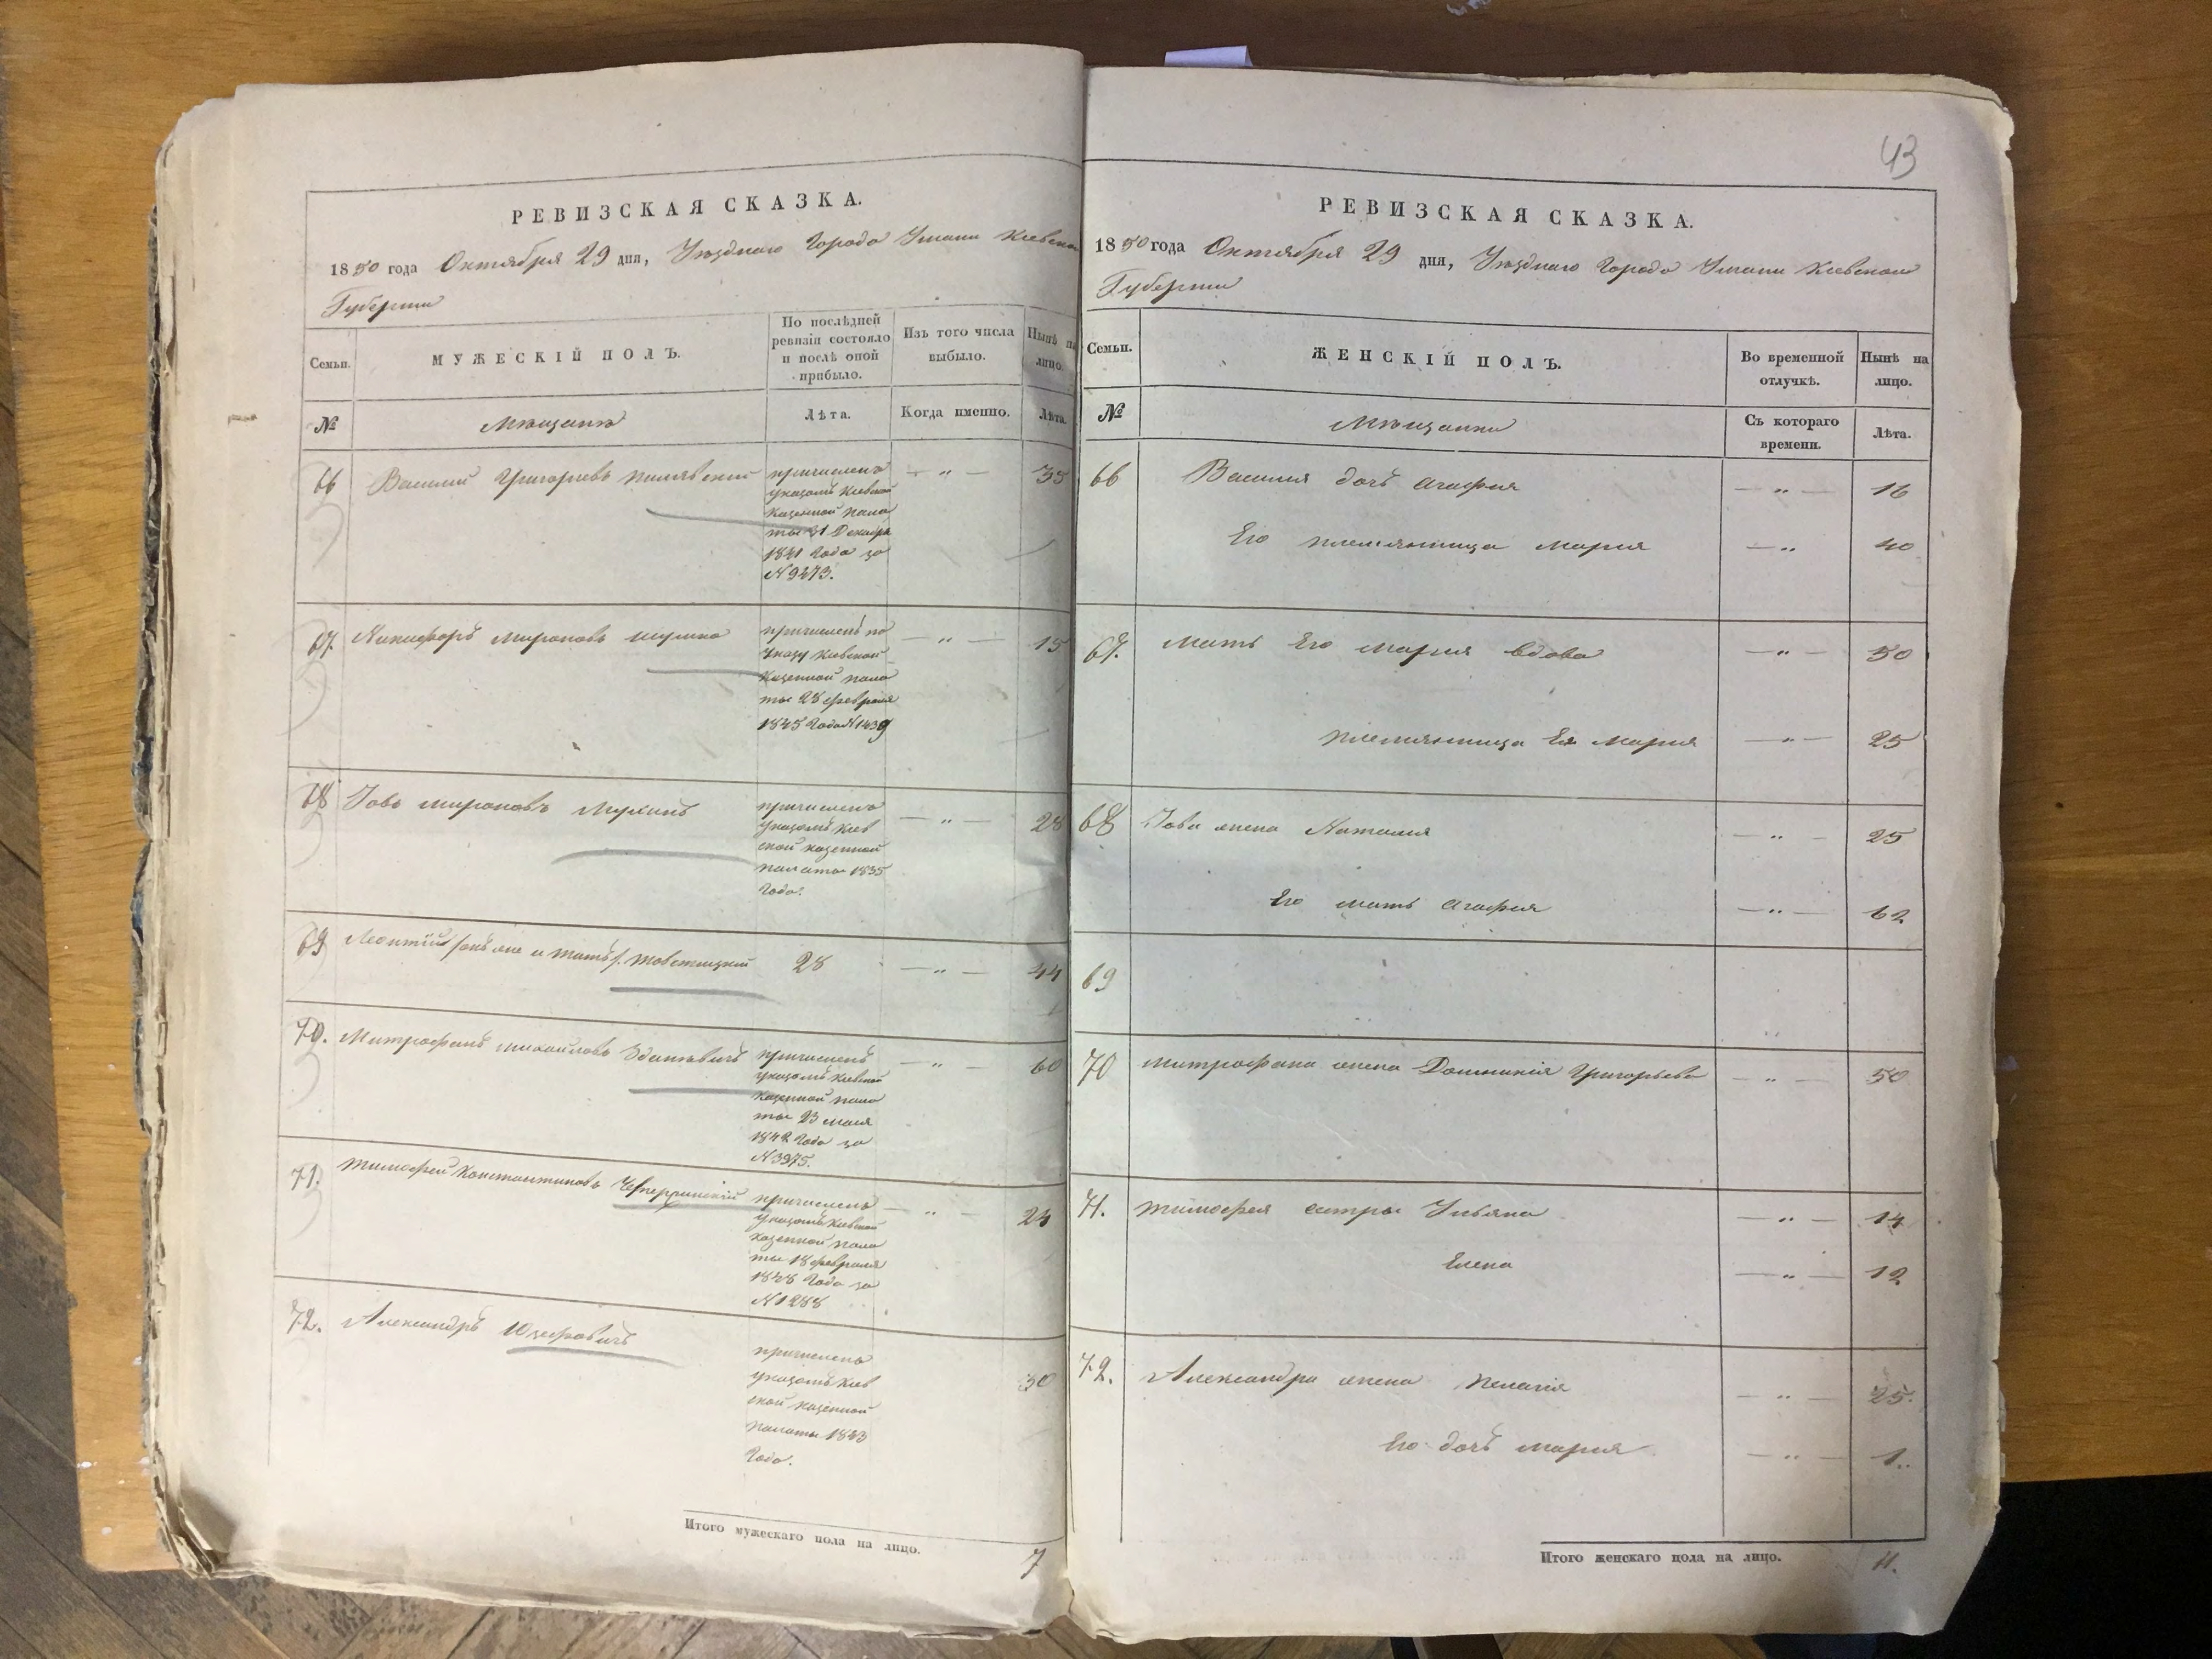 РЕВИЗСКАЯ СКАЗКА.
1850 года Октября 29 дня, Уѣзднаго Города Умани Кіевской
Губерніи
Семьи.
МУЖЕСКІЙ ПОЛЪ.
По послѣдней
ревизіи состояло
и послѣ оной
прибыло.
Изъ того числа
выбыло.
Нынѣ на
лицо.
№
Мѣщанъ
Лѣта.
Когда именно.
Лѣта.
66 Василий Григорьевъ
причисленъ
указомъ Кіевской
Казенной пала
ты 31 Декабря
1841 Года за
№ 9273.
— „ —
35
67. Никифоръ Мироновъ
причисленъ по
Указу Кіевской
Казенной пала
ты 28 февраля
1845 Года № 1439
— „ —
15
68 Іовъ Мироновъ
причисленъ
Указомъ Кіев
ской казенной
палаты 1835
Года.
— „ —
28
69 Леонтій
28
— „ —
44
70. Митрофанъ Михайловъ
причисленъ
указомъ Кіевской
Казенной пала
ты 23 мая
1842 Года за
№ 3975.
— „ —
60
71. Тимофей Константиновъ
причисленъ
Указомъ Кіевской
казенной пала
ты 18 февраля
1848 Года за
№ 1288
— „ —
24
72. Александръ Юзефовичъ
причисленъ
указомъ Кіев
ской казенной
палаты 1843
Года.
30
Итого мужескаго пола на лицо.
7
43
РЕВИЗСКАЯ СКАЗКА.
1850 года Октября 29 дня, Уѣзднаго Города Умани Кіевской
Губерніи
Семьи.
ЖЕНСКІЙ ПОЛЪ.
Во временной
отлучкѣ.
Нынѣ на
лицо.
№
Мѣщанки
Съ котораго
времени.
Лѣта.
66 Василия дочь Агафия — „ — 16
Его племянница Мария — „ 40
67. Мать Его Мария вдова — „ — 50
племянница Ея Мария — „ — 25
68 Іова жена Наталия — „ — 25
Его мать Агафия — „ — 62
69
70 Митрофана жена Домникія Григорьева — „ — 50
71. Тимофея сестры Ульяна — „ — 14
Елена — „ — 12
72. Александра жена Пелагія — „ — 25.
Его дочь Мария — „ — 1.
Итого женскаго пола на лицо.
11.